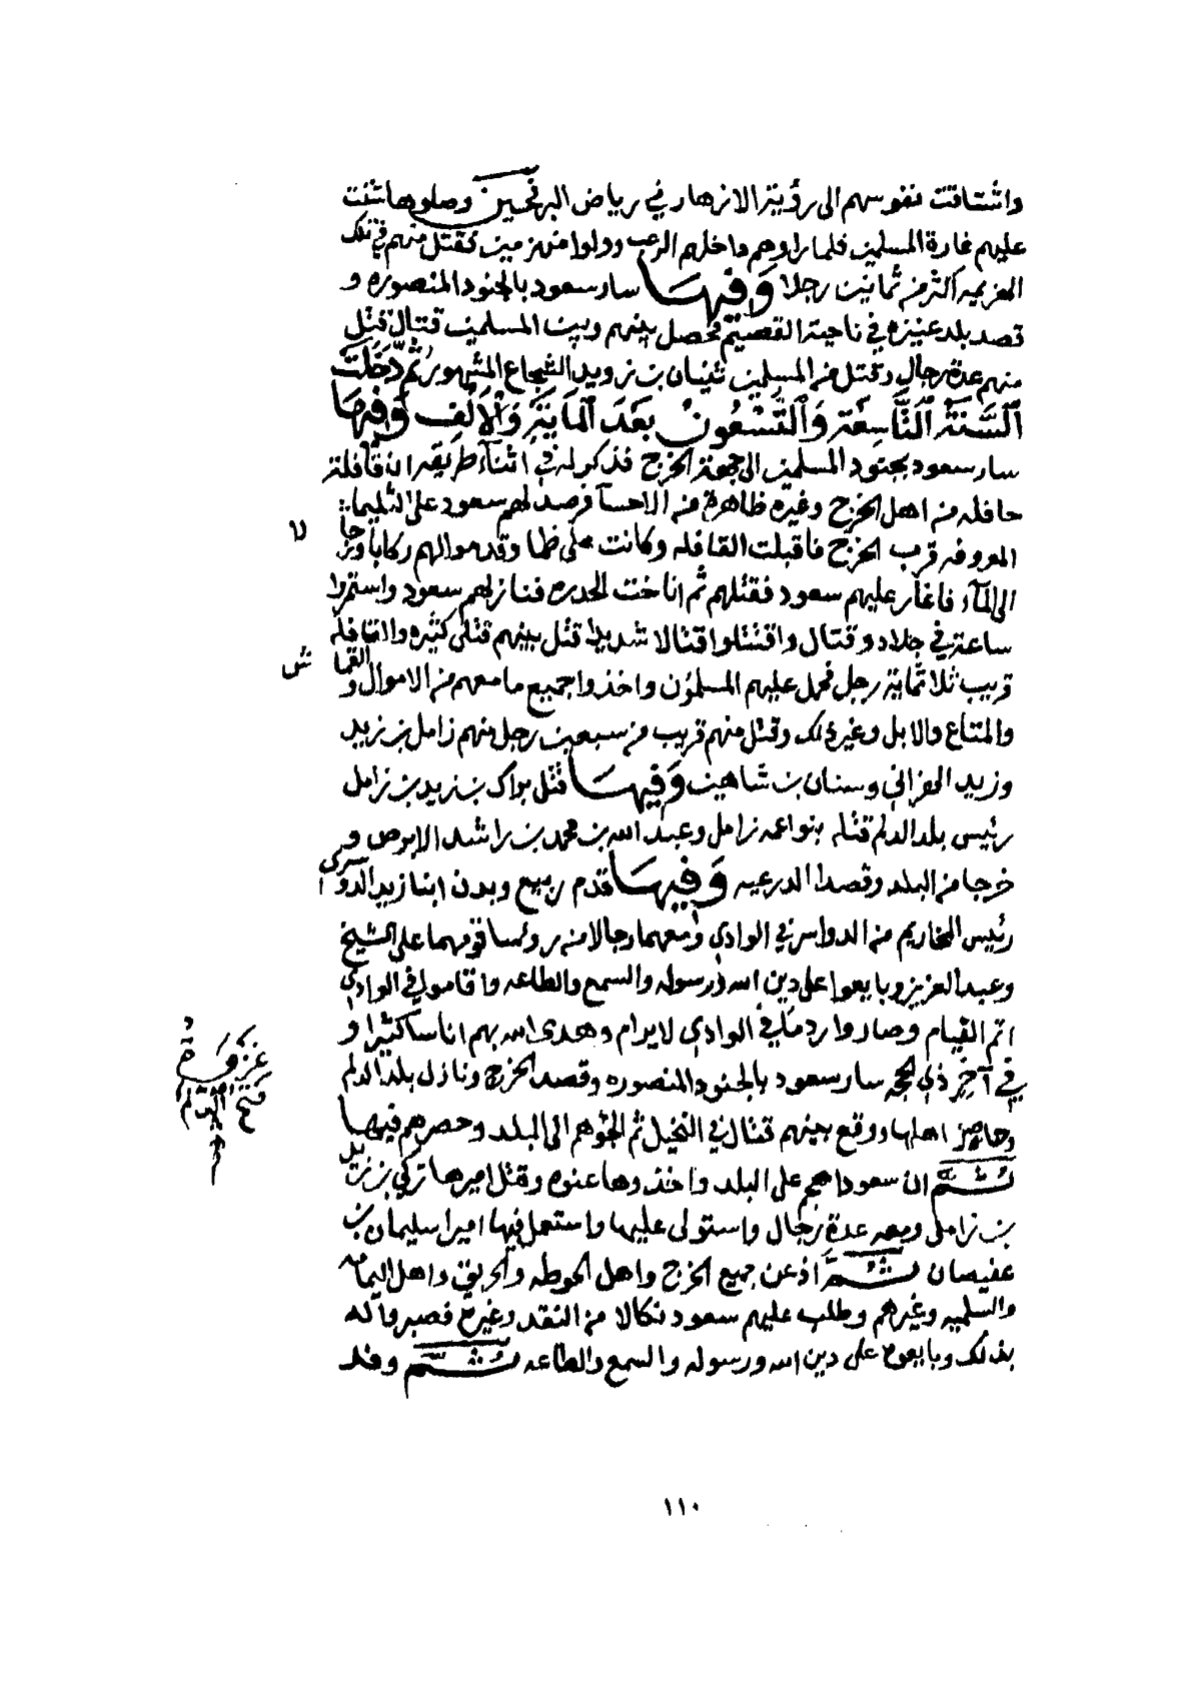 واشتاقت نفوسهم الى رؤية الازهار في رياض البر فحين وصلوها شنت
عليهم غارة المسلمين فلما راوهم داخلهم الرعب وولوا منهزمين فقتل منهم في تلك
الهزيمه اكثر من ثمانين رجلا وفيها سار سعود بالجنود المنصوره و
قصد بلد عنيزه في ناحية القصيم فحصل بينهم وبين المسلمين قتال قتل
منهم عدة رجال وقتل من المسلمين ثنيان بن زويد الشجاع المشهور ثُمَّ دَخَلَت
السَّنَةُ النَّاسِعَة وَالتِّسْعُونَ بَعدَ المايَة وَالأَلف وفيها
سار سعود بجنود المسلمين الى جهة الخرج فذكر له في اثناء طريقه ان قافلة
حافله من اهل الخرج وغيره ظاهرة من الاحسآ فرصد لهم سعود على الثليما
المعروفه قرب الخرج فاقبلت القافله وكانت على ظما وقدموا لهم ركابا ورجا
لا
الى المآء فاغار عليهم سعود فقتلهم ثم اناخت الحدره فنازلهم سعود واستمروا
ساعة في جلاد وقتال واقتتلوا قتالا شديدا قتل بينهم قتلى كثيره والقافله
قريب ثلاثماية رجل فحمل عليهم المسلمون واخذوا جميع ما معهم من الاموال والقما
ش
والمتاع والابل وغير ذلك وقتل منهم قريب من سبعين رجل منهم زامل بن زيد
وزيد الهزاني وسنان بن شاهين وَفيها قُتل براك بن زيد بن زامل
رئيس بلد الدلم قتله بنواعمه زامل وعبد الله بن محمد بن راشد الابرص و
خرجا من البلد وقصدا الدرعيه وَفيها قدم ربيع وبدن ابنا زيد الدوسري
رئيس المخاريم من الدواسر في الوادي ومعهما رجالا من رؤسا قومهما على الشيخ
وعبد العزيز وبايعوا على دين الله ورسوله والسمع والطاعه واقاموا في الوادي
اتم القيام وصاروا ردما في الوادي لا يرام وهدى الله بهم اناسا كثيرا و
في آخر ذي الحجه سار سعود بالجنود المنصوره وقصد الخرج ونازل بلد الدلم
غزوة
فتح الدلم
وحاصر اهلها ووقع بينهم قتال في النخيل ثم الجؤهم الى البلد وحصرهم فيها
ثُـمَّ ان سعودا هجم على البلد واخذوها عنوه وقتل اميرها تركي بن زيد
بن زامل ومعه عدة رجال واستولى عليها واستعمل فيها اميرا سليمان بن
عفيصان ثُـمَّ اذعن جميع الخرج واهل الحوطه والحريق واهل اليمامه
والسلميه وغيرهم وطلب عليهم سعود نكالا من النقد وغيره فصبروا له
بذلك وبايعوه على دين الله ورسوله والسمع والطاعه ثُـمَّ وفد
١١٠